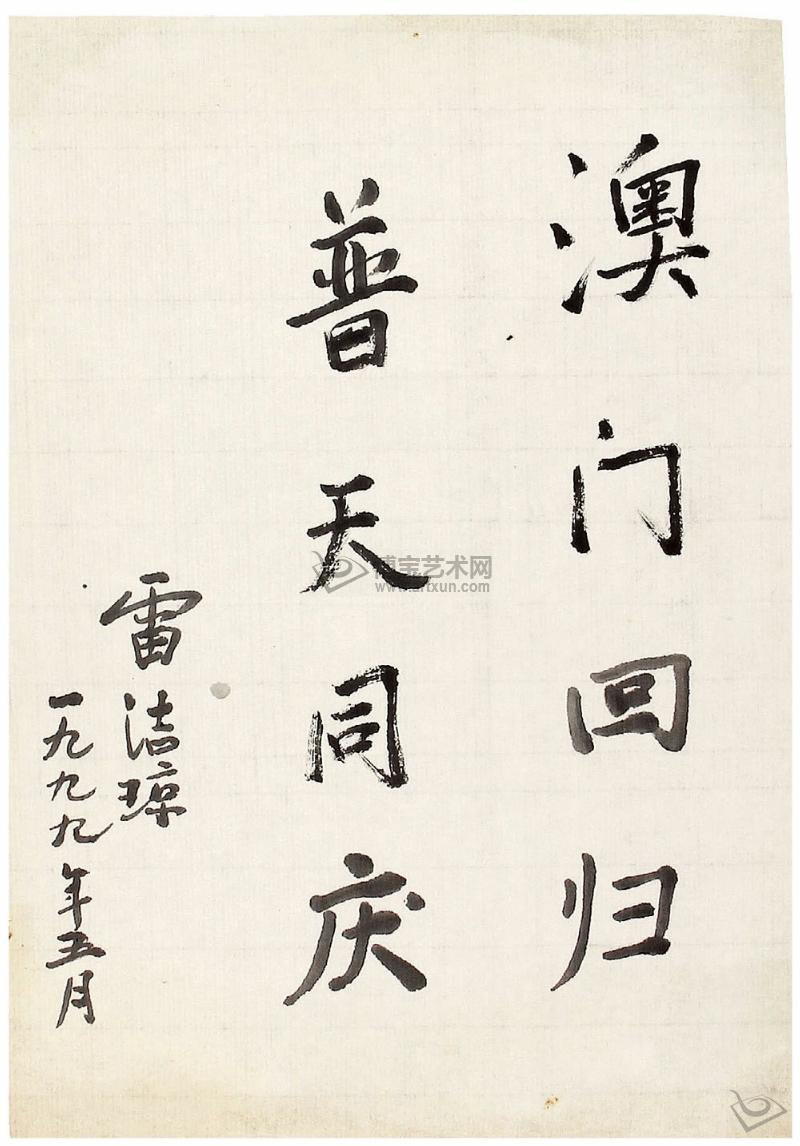 澳门回归
普天同庆
雷洁琼
一九九九年五月
博宝艺术网
www.artxun.com